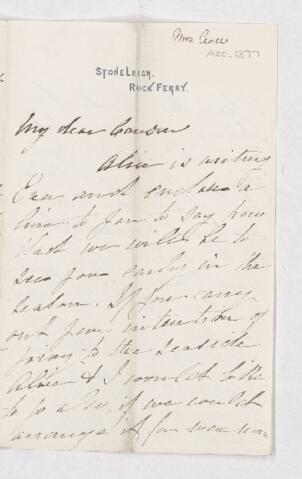 Mrs
Acc. 1377
STONELEIGH,
ROCK FERRY.
My dear Cousin
Alice is writing
Eva, and I enclose a
line to you to say how
glad we will be to
see you early in the
season. If you carry
out your intention of
going to the Seaside
Alice & I would like
to go also, if we could
arrange it, for we